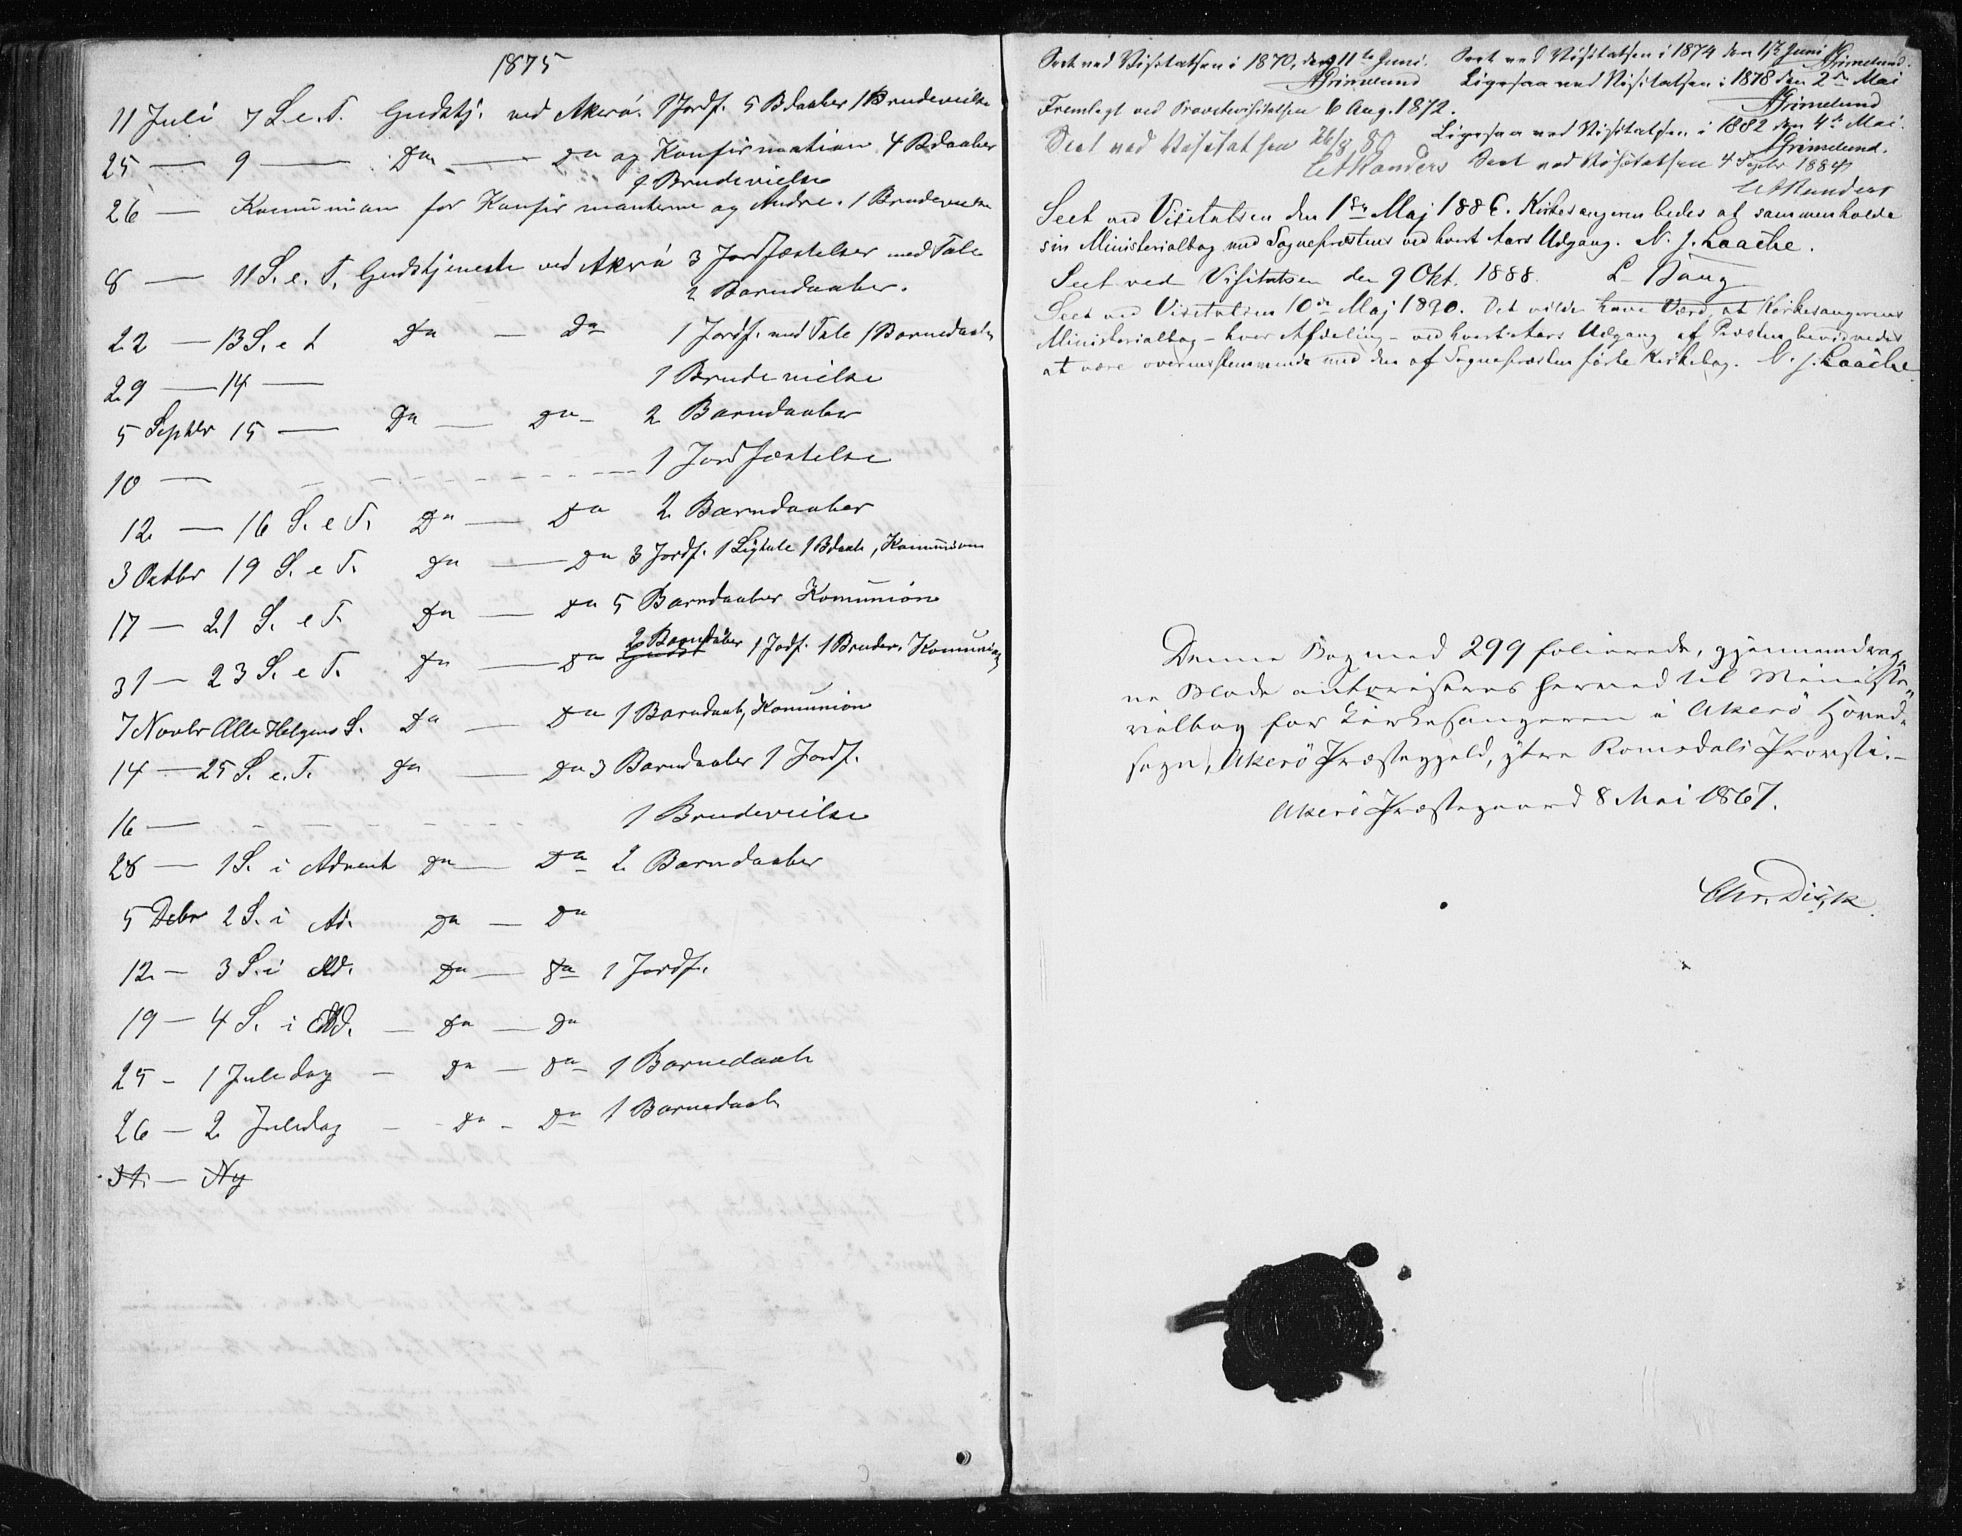 1875
11 Juli 7 S. e. T. Gudstj. ved Akerö. 1 Jordf. 5 Bdaaber 1 Brudevielse
25 — 9 — Do — Do og Konfirmation 4 Bdaaber
1 Brudevielse
26 — Komunion for Konfirmanterne og Andre. 1 Brudevielse
8 — 11 S. e. T. Gudstjeneste ved Akerö 3 Jordfæstelser med Tale
2 Barnedaaber.
22 — 13 S. e t Do — Do 1 Jordf. med Tale 1 Barnedaab
29 — 14 — 1 Brudevielse
5 Septbr 15 — Do — Do — 2 Barndaaber
10 — 1 Jordfæstelse
12 — 16 S. e T. Do — Do 2 Barndaaber
3 Octbr 19 S. e T. Do — Do 3 Jordf. 1 Ligtale 1 Bdaab, Komunion
17 — 21 S. e T. Do — Do 5 Barndaaber Komunion
31 — 23 S. e T. Do — Do 2 Barndåber 1 Jodf. 1 Brudev. Komunion
7 Novbr Alle Helgens S. Do — Do 1 Barndaab, Komunion
14 — 25 S. e. T. Do — Do 3 Barndaaber 1 Jordf.
16 — 1 Brudevielse
28 — 1 S. i Advent Do — Do 2 Barndaaber
5 Debr 2 S. i Ad. Do — Do
12 — 3 S. i Ad. Do — Do 1 Jordf.
19 — 4 S. i Ad. — Do — Do
25 — 1 Juledag — Do — Do 1 Barnedaab
26 — 2 Juledag — Do — Do 1 Barnedaab
31. — Ny
Seet ved Visitatsen i 1870, den 11te Juni.
AGrimelund
Seet ved Visitatsen i 1874 den 13 Juni
AGrimelund.
Ligesaa ved Visitatsen i 1878 den 2den Mai
AGrimelund
Fremlagt ved Provstevisitatsen 6 Aug. 1872.
Ligesaa ved Visitatsen i 1882 den 4de Mai.
AGrimelund.
Seet ved Visitatsen 26/8 80
Seet ved Visitatsen 4 Septbr 1884
Seet ved Visitatsen den 1ste Maj 1886. Kirkesangeren bedes at sammenholde
sin Ministerialbog med Sognepræstens ved hvert Aars Udgang. N. J. Laache.
Seet ved Visitatsen den 9 Okt. 1888. L. Baug
Seet ved Visitatsen 10de Maj 1890. Det vilde have Værd, at Kirkesangerens
Ministerialbog — hver Afdeling — ved hvert Aars Udgang af Præsten bevidnedes
at være overensstemmende med den af Sognepræsten førte Kirkebog. N. J. Laache
Denne Bog med 299 folierede, gjennemdrag-
ne Blade autoriseres herved til Ministe-
rialbog for Kirkesangeren i Akerö Hoved-
sogn, Akerö Præstegjeld, ytre Romsdals Provsti. —
Akerö Præstegaard 8 Mai 1867.
Chr. Disk